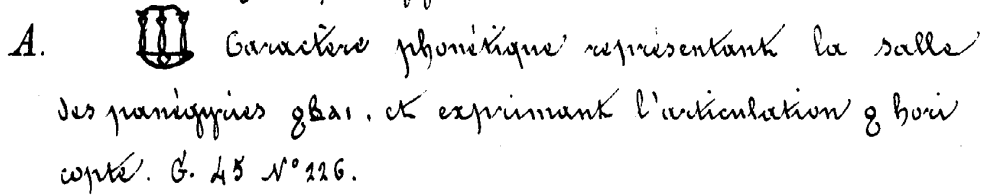 A. Caractère phonétique représentant la salle
des panégyries ϩⲃⲁⲓ. et exprimant l'articulation ϩ hori
copte. G. 45 N° 226.